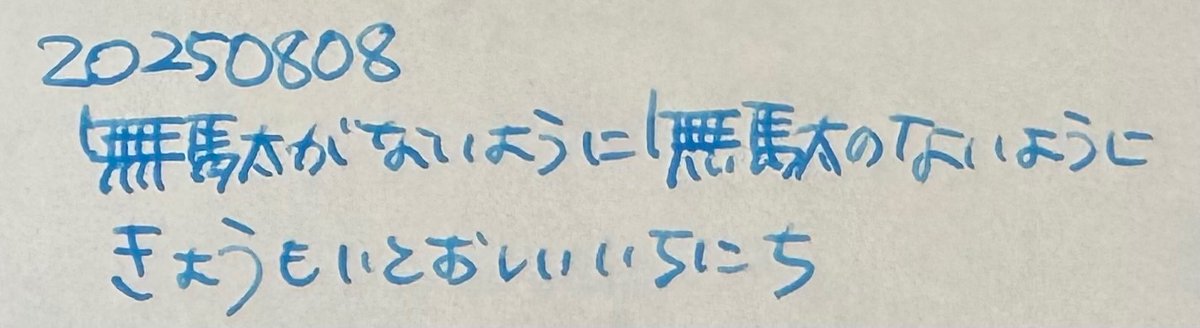 20250808
無駄がないように無駄のないように
きょうもいとおしいいちにち